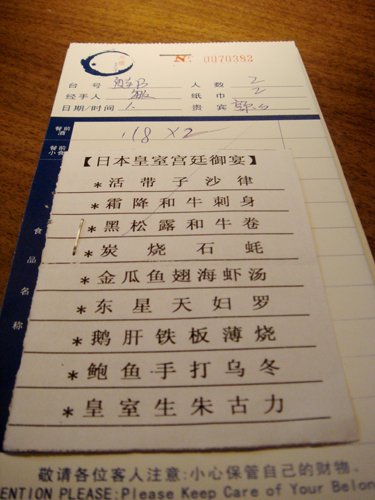 No. 0070382
台 号 人 数 2
经手人 纸 巾 2
日期/时间 贵 宾
餐前酒 118 X 2
餐前小食
食品名称
【日本皇室宫廷御宴】
*活带子沙律
*霜降和牛刺身
*黑松露和牛卷
*炭烧石蚝
*金瓜鱼翅海虾汤
*东星天妇罗
*鹅肝铁板薄烧
*鲍鱼手打乌冬
*皇室生朱古力
敬请各位客人注意:小心保管自己的财物.
ENTION PLEASE:Please Keep Care of Your Belon